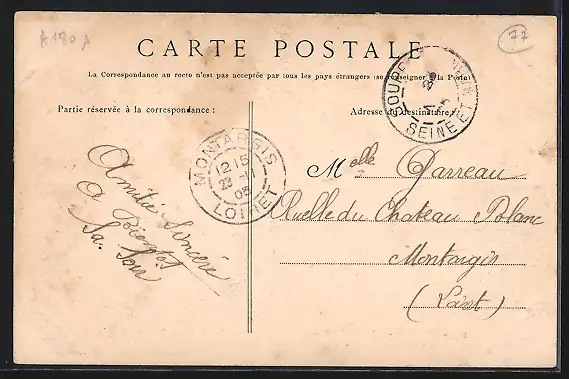 A180A
77
CARTE POSTALE
La Correspondance au recto n'est pas acceptée par tous les pays étrangers (se renseigner à la Poste)
Partie réservée à la correspondance :
Adresse du destinataire
SEINE ET
MONTARGIS
12 15
23 -11
05
LOIRET
Amitié Sincère
a Bientot
Sa
Melle Garreau
Ruelle du Chateau Blanc
Montargis
(Loiret)